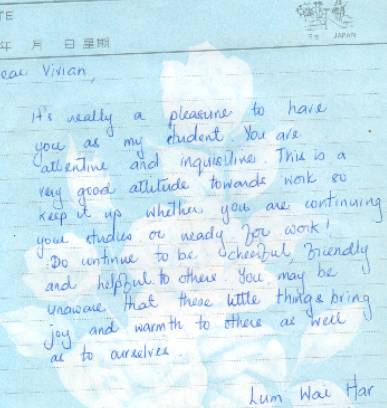 TE
JAPAN
年 月 日 星期
ear Vivian,
It's really a pleasure to have
you as my student You are
attentive and inquisitive. This is a
very good attitude towards work so
keep it up whether you are continuing
your studies or ready for work!
Do continue to be cheerful, friendly
and helpful to others You may be
unaware that these little things bring
joy and warmth to others as well
as to ourselves.
Lum Wai Har